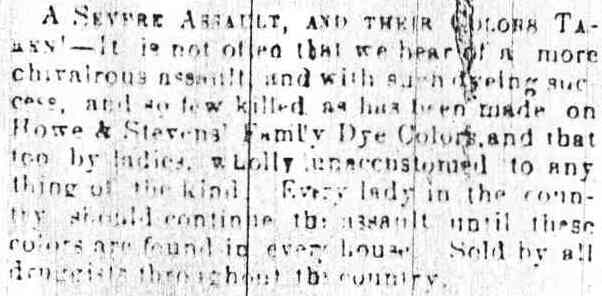 A SEVERE ASSAULT, AND THEIR COLORS TA-
KEN!—It is not often that we hear of a more
chivalrous assault, and with such dyeing suc
cess, and so few killed, as has been made on
Howe & Stevens' Family Dye Colors, and that
too by ladies, wholly unaccustomed to any
thing of the kind. Every lady in the coun-
try should continue the assault until these
colors are found in every house. Sold by all
druggists throughout the country.